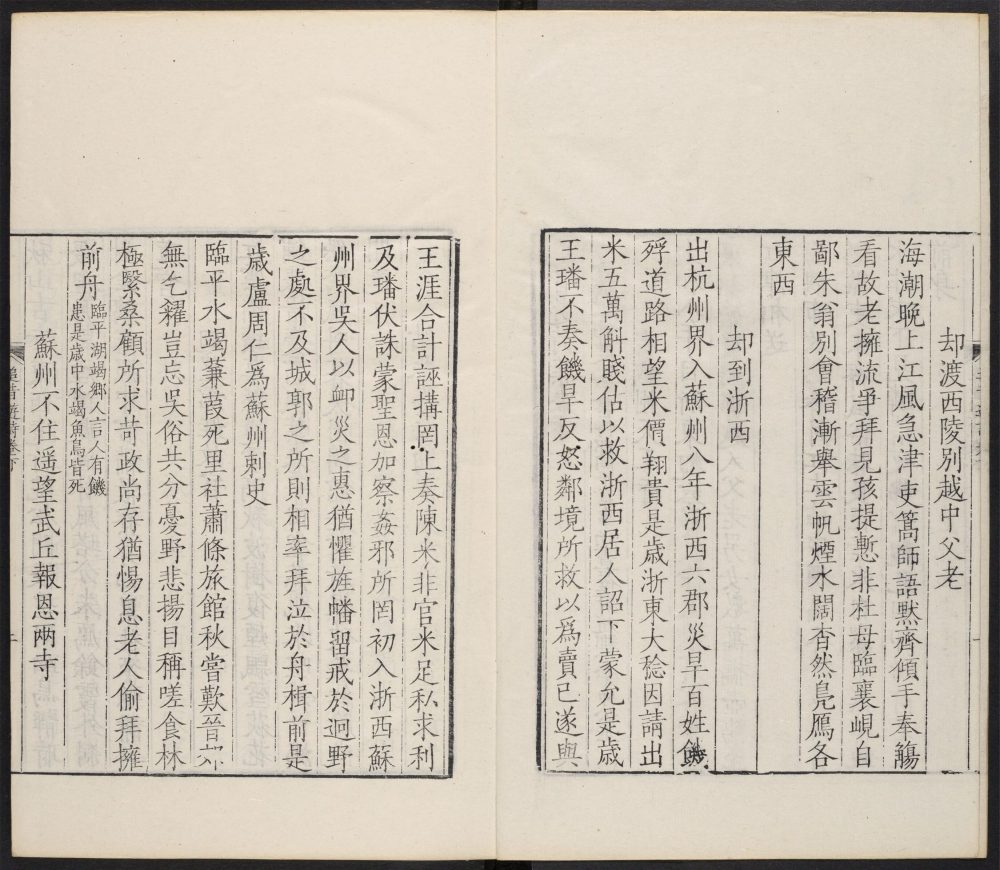 却渡西陵別越中父老
海潮晚上江風急津吏篙師語默齊傾手奉觴
看故老擁流爭拜見孩提慙非杜母臨襄峴自
鄙朱翁別會稽漸舉雲帆煙水闊杳然鳧鴈各
東西
却到浙西
出杭州界入蘇州八年浙西六郡災旱百姓饑
殍道路相望米價翔貴是歲浙東大稔因請出
米五萬斛賤估以救浙西居人詔下蒙允是歲
王璠不奏饑旱反怒鄰境所救以爲賣己遂與
王涯合計誣搆罔上奏陳米非官米足私求利
及璠伏誅蒙聖恩加察姦邪所罔初入浙西蘇
州界吳人以卹災之惠猶懼旌幡留戒於迥野
之處不及城郭之所則相率拜泣於舟楫前是
歲盧周仁爲蘇州刺史
臨平水竭蒹葭死里社蕭條旅館秋嘗歎晉
無乞糴豈忘吳俗共分憂野悲揚目稱嗟食林
極繄桑顧所求苛政尚存猶惕息老人偷拜擁
前舟臨平湖竭鄉人言人有饑
患是歲中水竭魚鳥皆死
蘇州不住遥望武丘報恩兩寺
追昔遊詩卷下